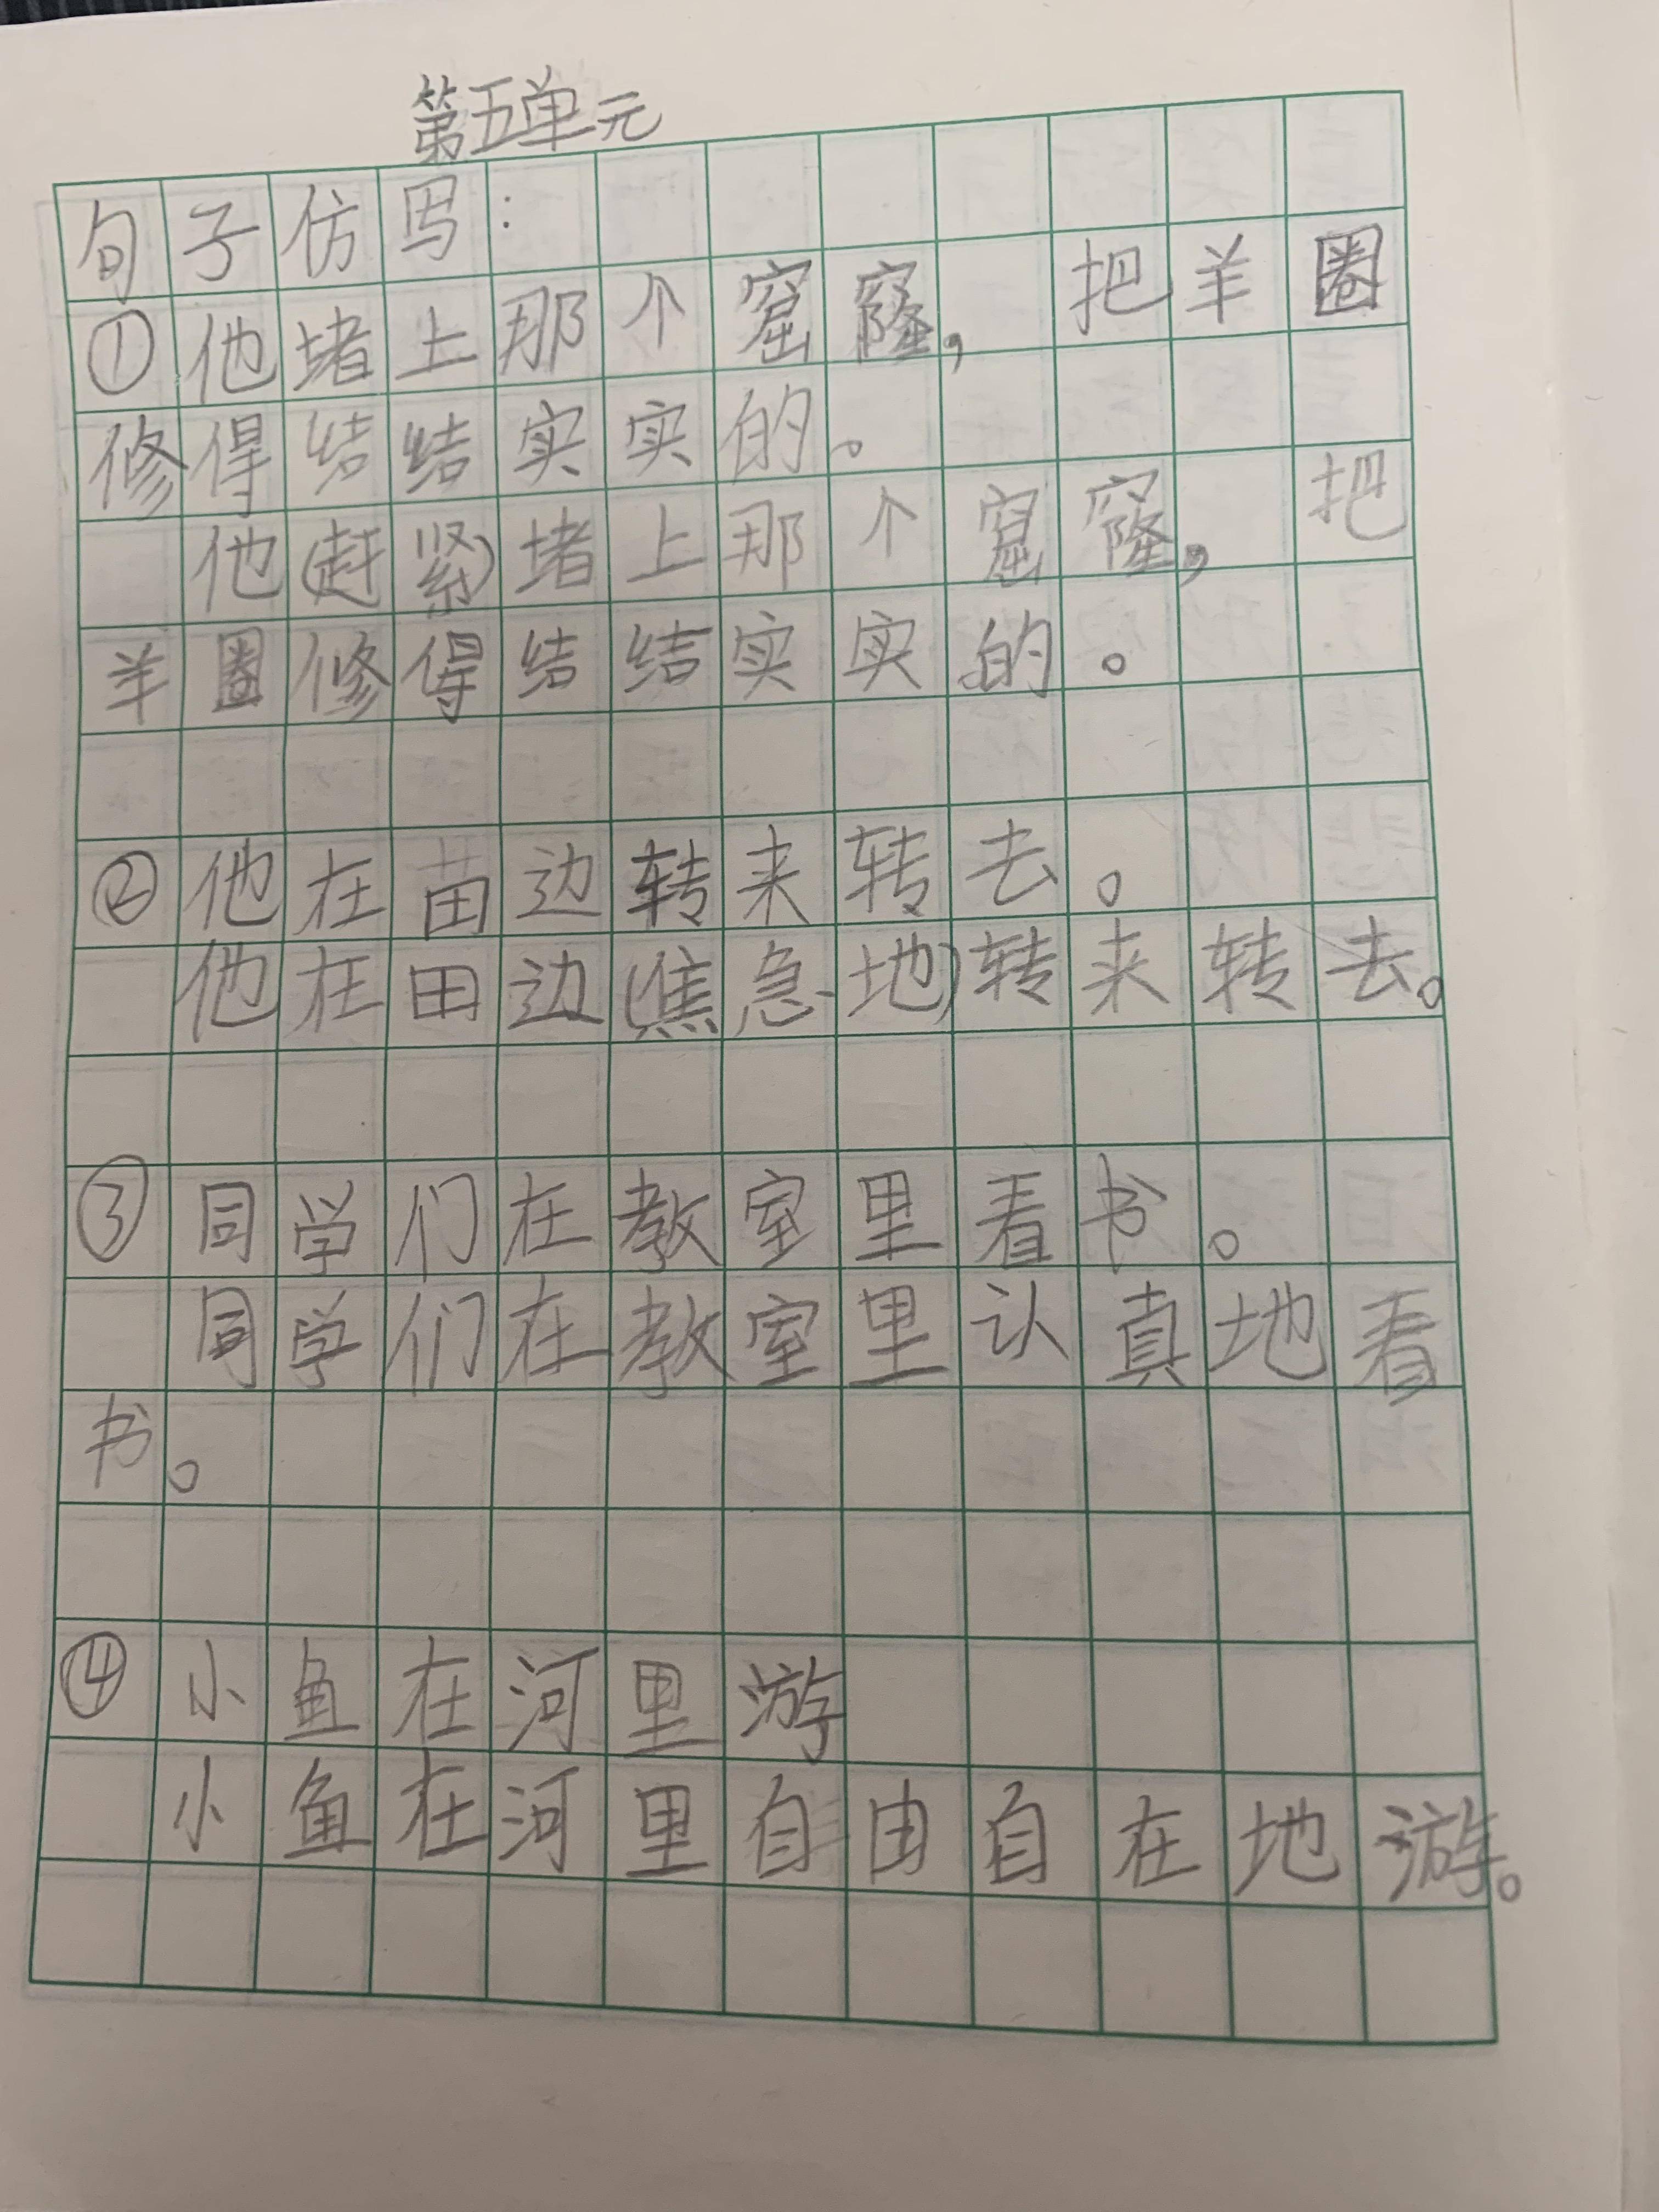 第五单元
句子仿写：
①他堵上那个窟窿，把羊圈
修得结结实实的。
他(赶紧)堵上那个窟窿，把
羊圈修得结结实实的。
②他在苗边转来转去。
他在田边(焦急地)转来转去。
③同学们在教室里看书。
同学们在教室里认真地看
书。
④小鱼在河里游
小鱼在河里自由自在地游。